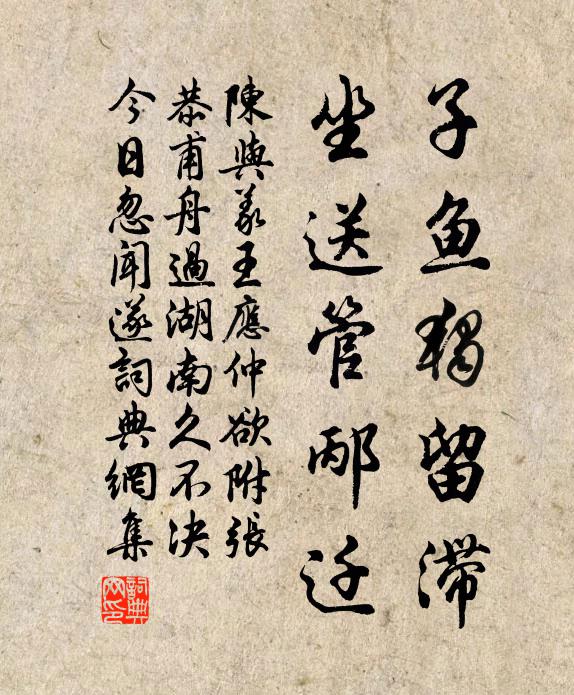 子鱼独留滞
坐送管邴迁
陳與義王應仲欲附張
恭甫舟過湖南久不决
今日忽聞遂詞典網集
詞典
网印